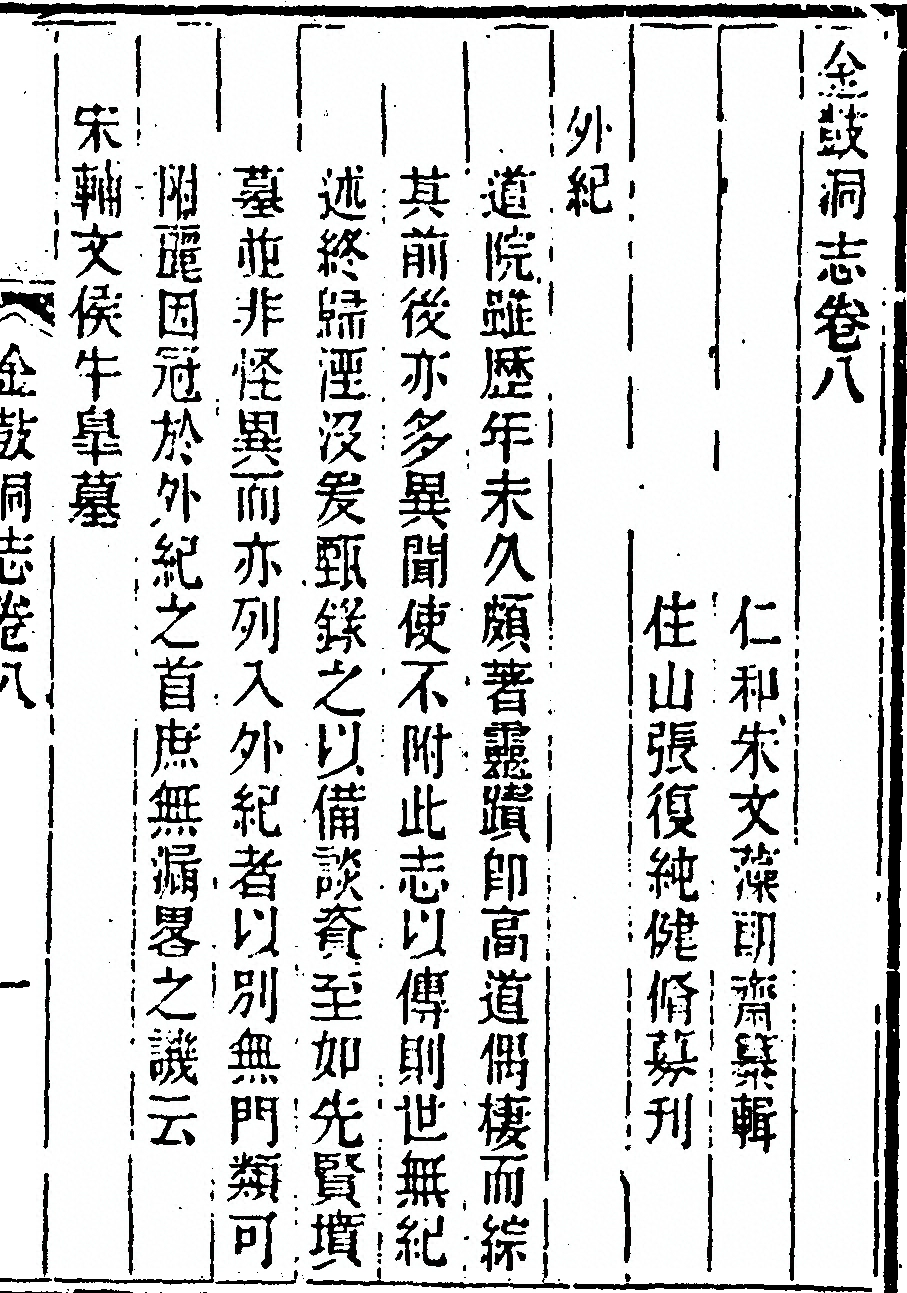 金鼓洞志卷八
仁和朱文藻朗齋纂輯
住山張復純健脩募刊
外紀
道院雖歷年未久頗著靈蹟即高道偶棲而綜
其前後亦多異聞使不附此志以傳則世無紀
述終歸湮沒爰甄錄之以備談資至如先賢墳
墓並非怪異而亦列入外紀者以別無門類可
附麗因冠於外紀之首庶無漏畧之譏云
宋輔文侯牛皋墓
金鼓洞志卷八
一